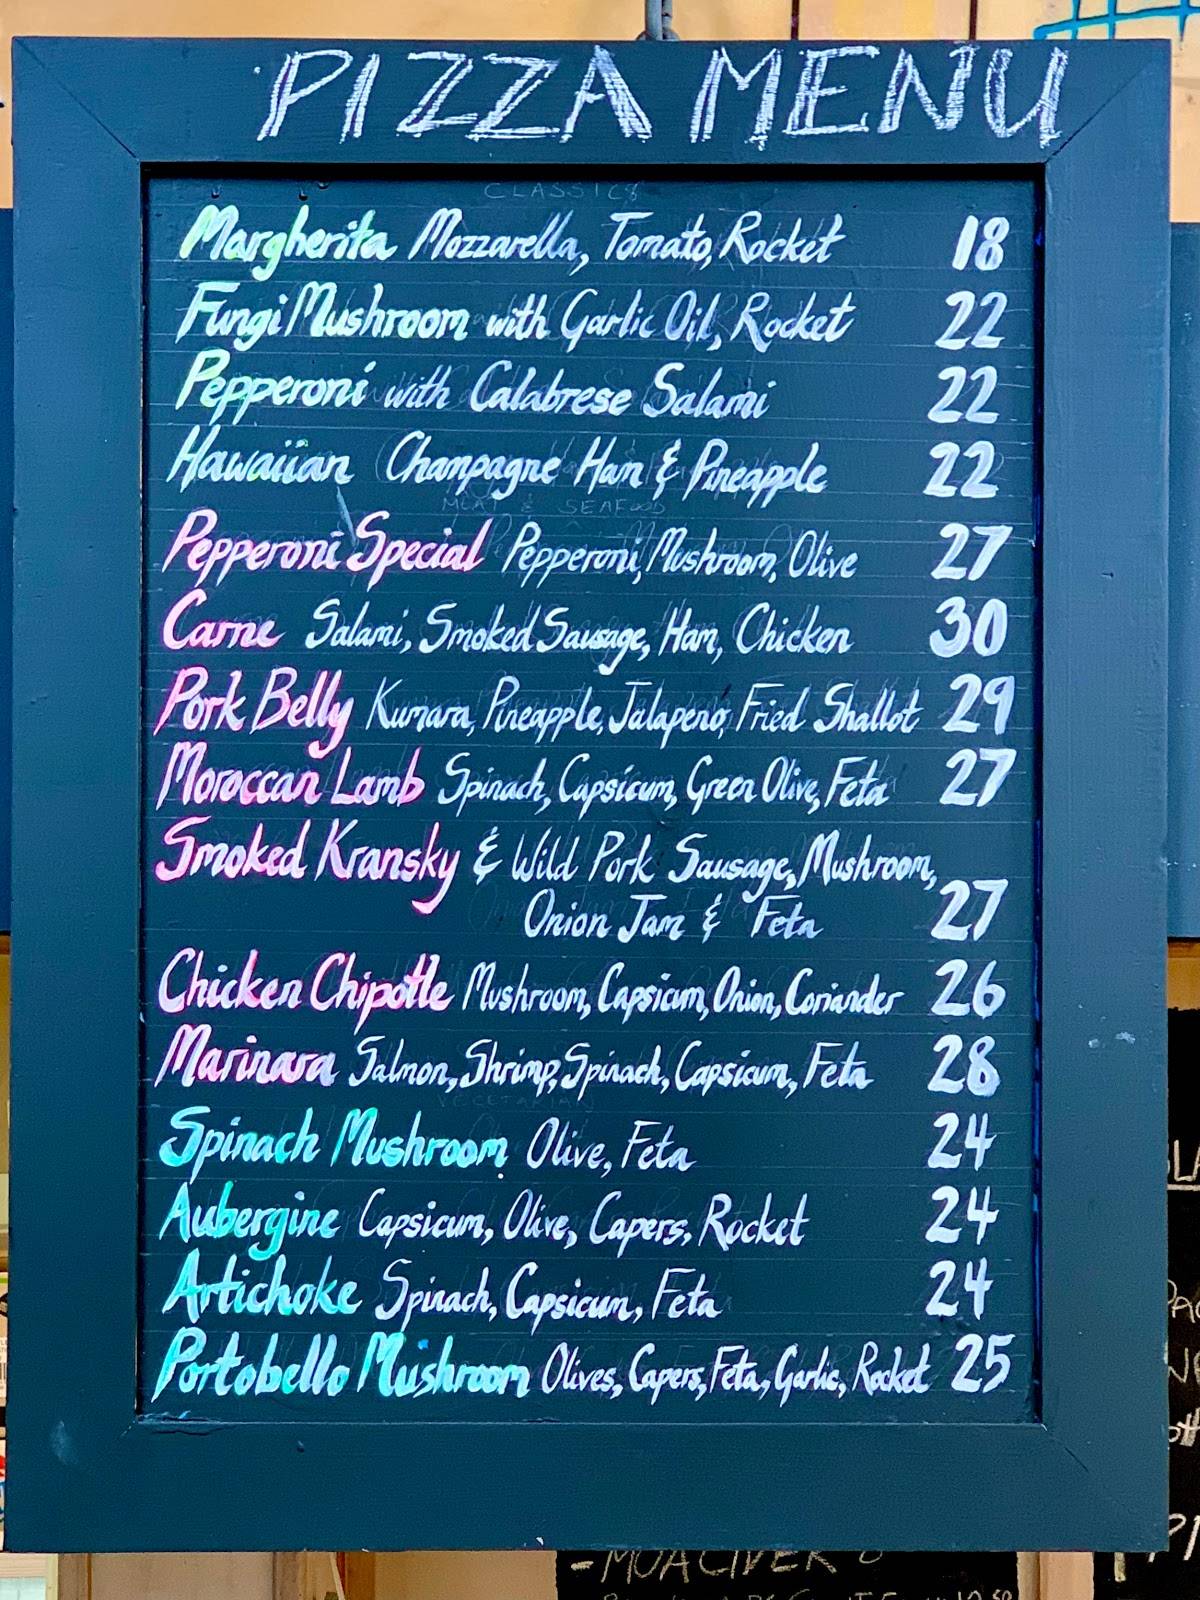 PIZZA MENU
CLASSICS
Margherita Mozzarella, Tomato, Rocket 18
Fungi Mushroom with Garlic Oil, Rocket 22
Pepperoni with Calabrese Salami 22
Hawaiian Champagne Ham & Pineapple 22
MEAT & SEAFOOD
Pepperoni Special Pepperoni, Mushroom, Olive 27
Carne Salami, Smoked Sausage, Ham, Chicken 30
Pork Belly Kumara, Pineapple, Jalapeno, Fried Shallot 29
Moroccan Lamb Spinach, Capsicum, Green Olive, Feta 27
Smoked Kransky & Wild Pork Sausage, Mushroom,
Onion Jam & Feta 27
Chicken Chipotle Mushroom, Capsicum, Onion, Coriander 26
Marinara Salmon, Shrimp, Spinach, Capsicum, Feta 28
VEGETARIAN
Spinach Mushroom Olive, Feta 24
Aubergine Capsicum, Olive, Capers, Rocket 24
Artichoke Spinach, Capsicum, Feta 24
Portobello Mushroom Olives, Capers, Feta, Garlic, Rocket 25